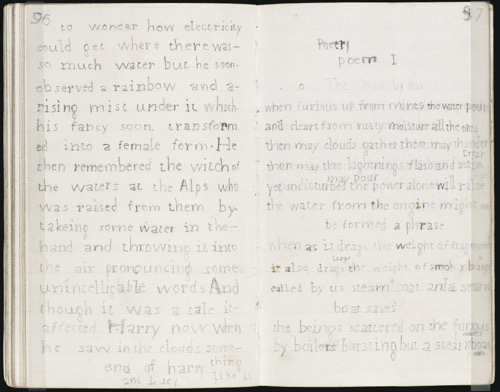 96
to wonder how electricity
could get where there was
so much water but he soon
observed a rainbow and a-
rising mist under it which
his fancy soon transform
ed into a female form. He
then remembered the witch of
the waters at the Alps who
was raised from them by-
takeing some water in the-
hand and throwing it into
the air pronouncing some
unintelligable words And
though it was a tale it-
affected Harry now when
he saw in the clouds some-
end of harry thing
and Lucy like it
97
Poetry
poem 1
when furious up from mines the water pours
and clears from rusty moisture all the ores
then may clouds gather then may thunder
roar
then may the lightnings flash and rain
may pour
yet undisturbed the power alone will raise
the water from the engine might
be formed a phrase
when as it drags the weight of fragments
large
it also drags the weight of smoky barge
called by us steam boat and a steam
boat saves
the beings scattered on the furious
waves
by boilers bursting but a steamboat